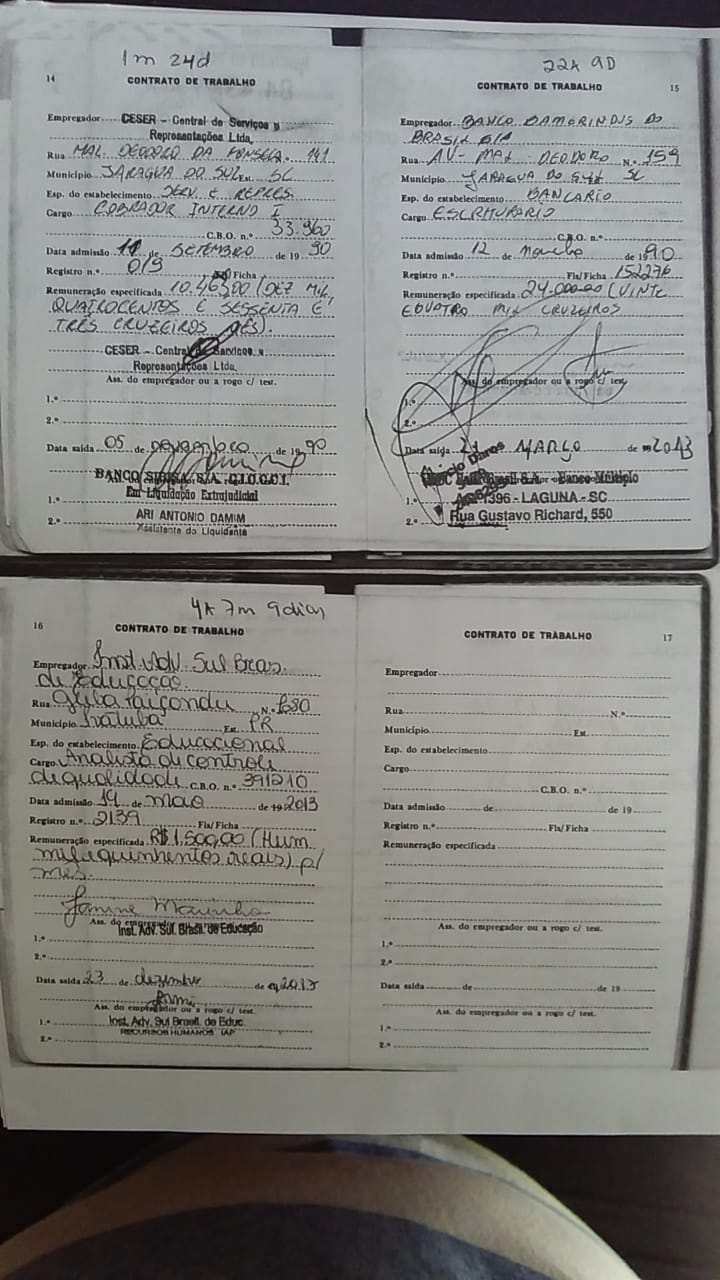 1m 24d
14
CONTRATO DE TRABALHO
Empregador CESER - Central de Serviços e
Representações Ltda.
Rua MAL. DEODORO DA FONSECA N.º 141
Município JARAGUA DO SUL Est. SC
Esp. do estabelecimento SERV. E REPRES.
Cargo COBRADOR INTERNO I
C.B.O. n.º 33.960
Data admissão 11 de SETEMBRO de 19 90
Registro n.º 019 Ficha
Remuneração especificada 10.463,00 (DEZ MIL,
QUATROCENTOS E SESSENTA E
TRÊS CRUZEIROS MÊS).
CESER - Central de Serviços e
Representações Ltda.
Ass. do empregador ou a rogo c/ test.
1.º
2.º
Data saída 05 de novembro de 19 90
BANCO S.A.
Em Liquidação Extrajudicial
1.º
ARI ANTONIO DAMIM
2.º
Assistente do Liquidante
22A 9D
CONTRATO DE TRABALHO
15
Empregador BANCO BAMERINDUS DO
BRASIL S/A
Rua AV- MAL DEODORO N.º 159
Município JARAGUA DO SUL SC
Esp. do estabelecimento BANCARIO
Cargo ESCRITURARIO
C.B.O. n.º
Data admissão 12 de novembro de 19 90
Registro n.º Fls/Ficha 152276
Remuneração especificada 24.000,00 (VINTE
E QUATRO MIL CRUZEIROS
Ass. do empregador ou a rogo c/ test.
1.º
2.º
Data saída 21 MARÇO de 2013
Brasil S.A. - Banco Múltiplo
1.º 1396 - LAGUNA - SC
2.º Rua Gustavo Richard, 550
4A 7m 9dias
16
CONTRATO DE TRABALHO
Empregador Inst. Adv. Sul Bras.
de Educação
Rua Gleba Paiçandu N.º 1680
Município Ivatuba Est. PR
Esp. do estabelecimento Educacional
Cargo Analista de controle
de qualidade C.B.O. n.º 391210
Data admissão 14 de maio de 19 2013
Registro n.º 2139 Fls/Ficha
Remuneração especificada R$ 1.500,00 (Hum
mil e quinhentos reais) p/
mês.
Janine Marinho
Ass. do empregador
Inst. Adv. Sul Brasil. de Educação
1.º
2.º
Data saída 23 de dezembro de
Ass. do empregador ou a rogo c/ test.
1.º Inst. Adv. Sul Brasil. de Educ.
RECURSOS HUMANOS IAP
2.º
CONTRATO DE TRABALHO
17
Empregador
Rua N.º
Município Est.
Esp. do estabelecimento
Cargo
C.B.O. n.º
Data admissão de de 19
Registro n.º Fls/Ficha
Remuneração especificada
Ass. do empregador ou a rogo c/ test.
1.º
2.º
Data saída de de 19
Ass. do empregador ou a rogo c/ test.
1.º
2.º